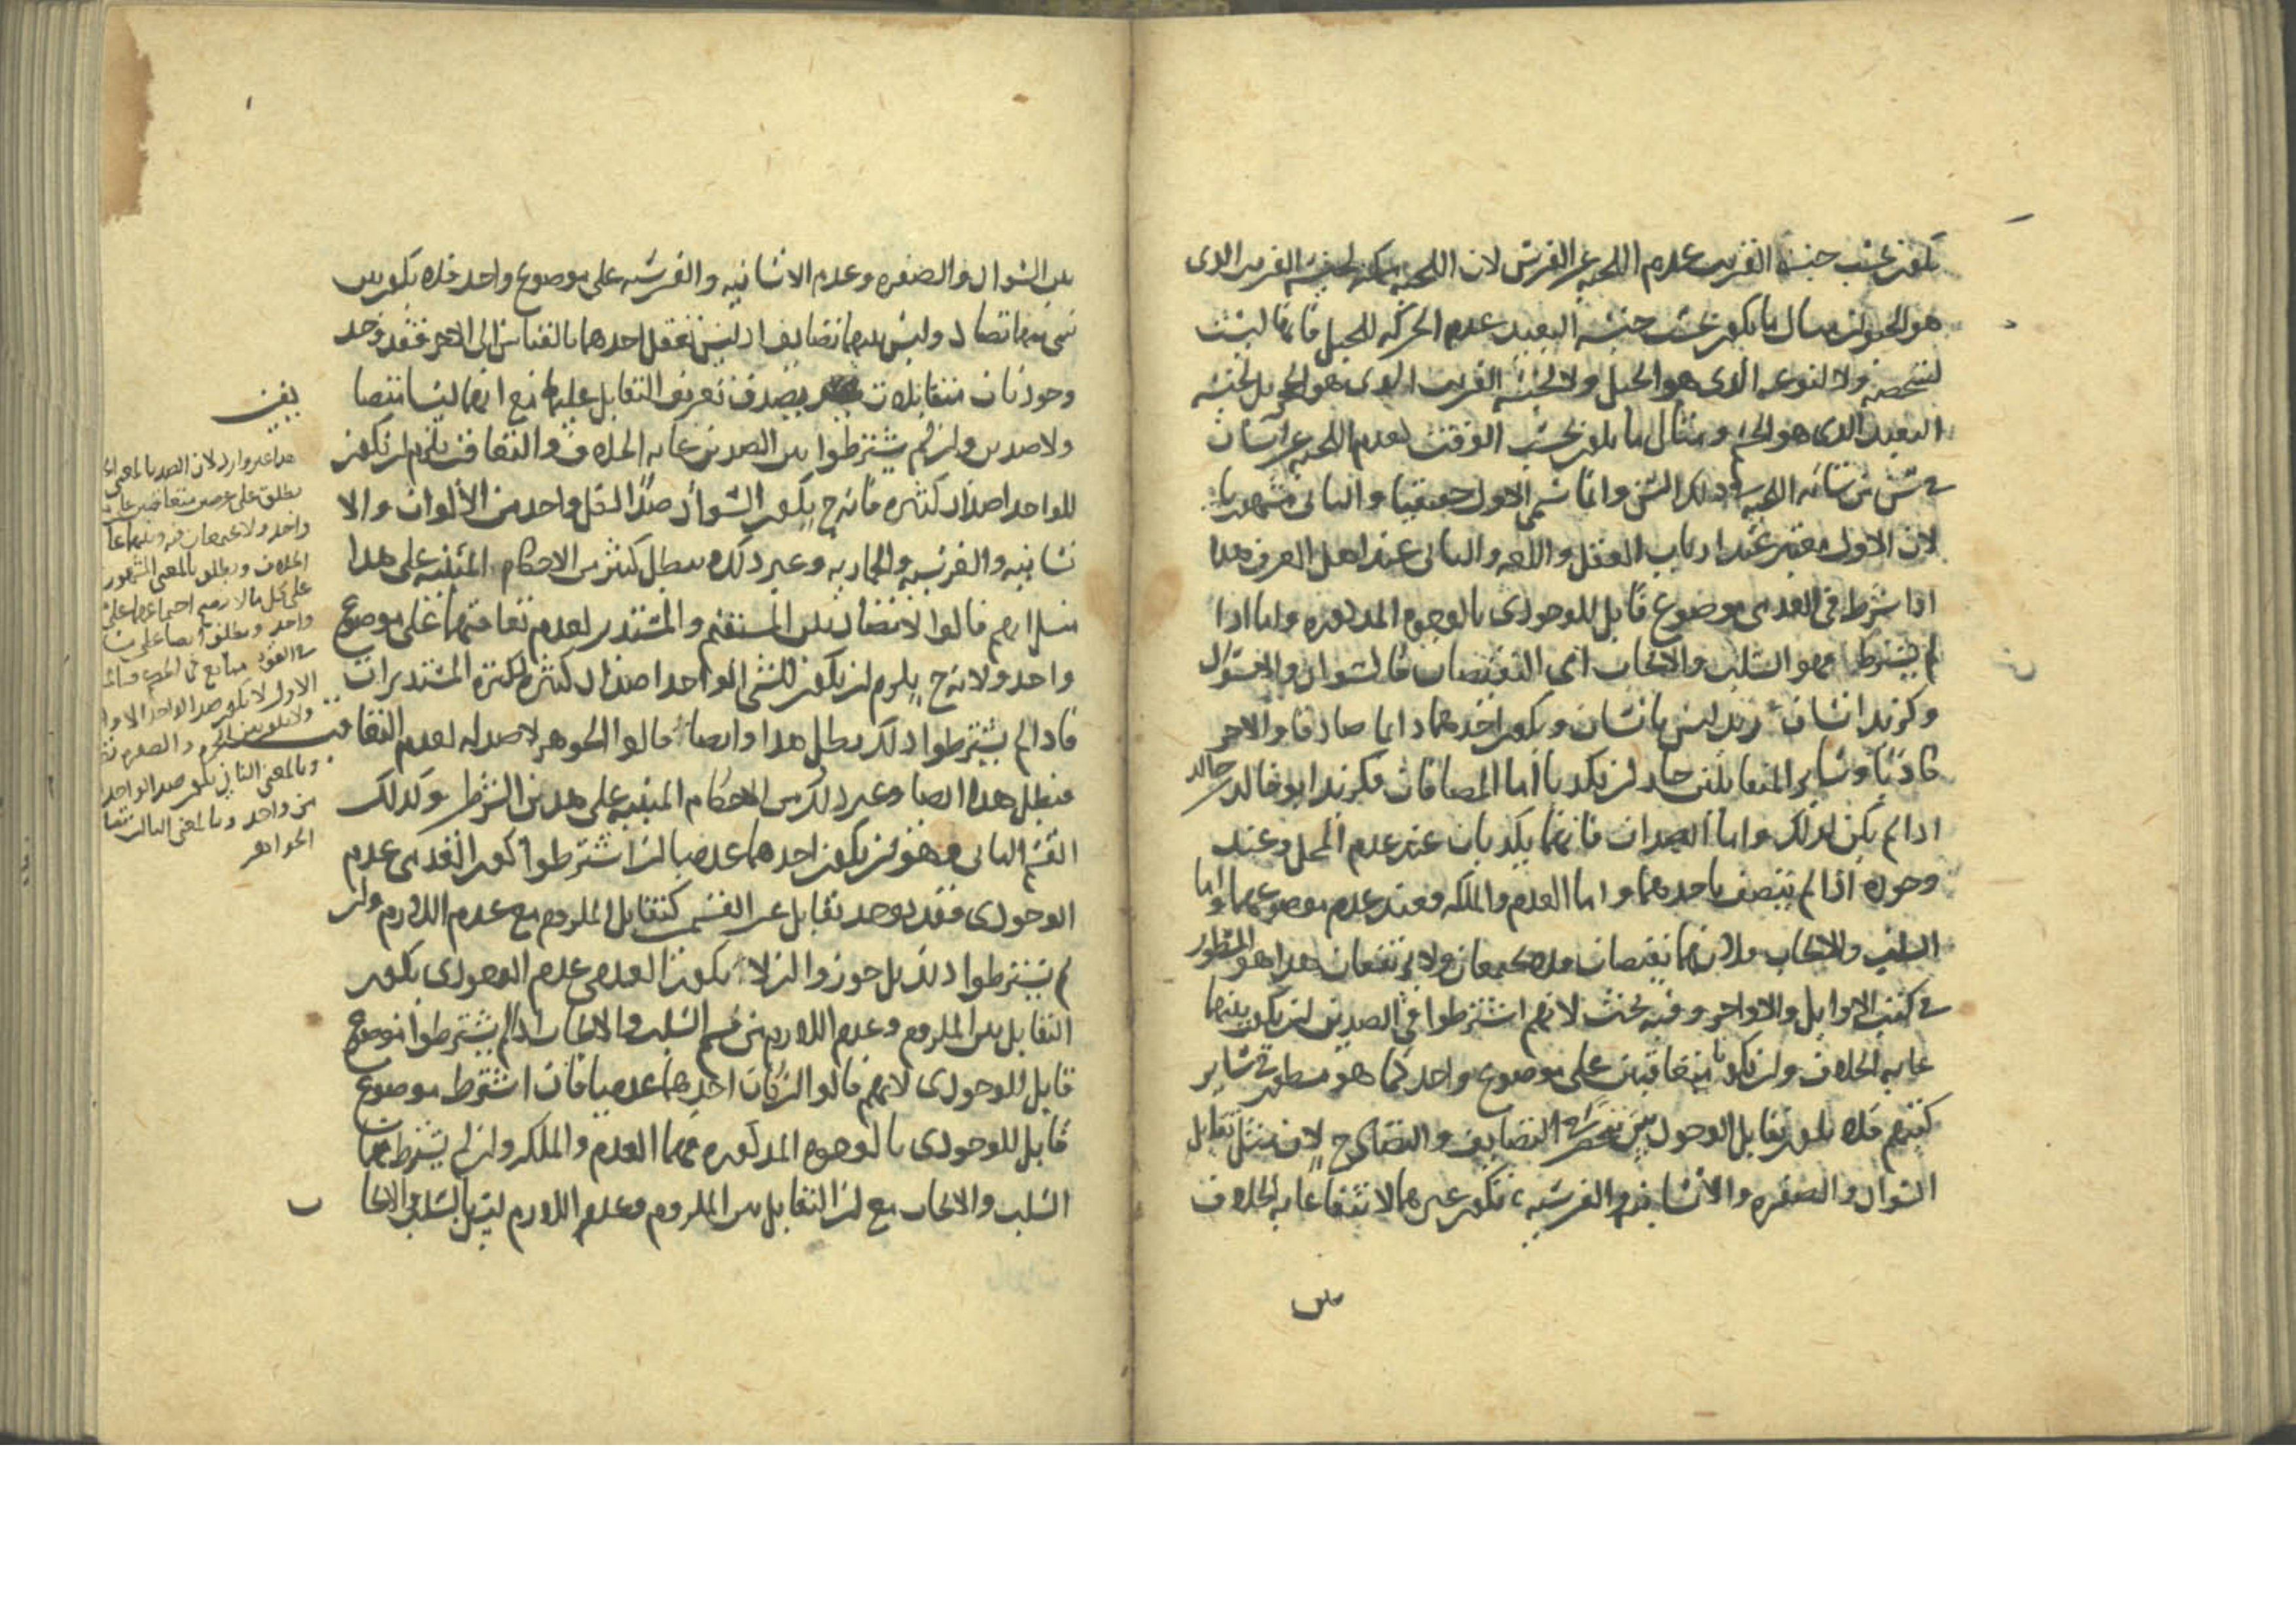 يكون بحسب جنسه القريب عدم اللحيه عن الفرس لان اللحيه يمكنه لجنسه القريب الذى
هو الحيوان مثال ما يكون بحسب جنسه البعيد عدم الحركه للجبل فانها ليست
لشخصه ولا لنوعه الذى هو الجبل ولا لجنسه القريب الذى هو الحجر بل لجنسه
البعيد الذى هو الجسم ومثال ما يكون بحسب الوقت لعدم اللحيه عن انسان
فى سن من شانه اللحيه فى ذلك السن وانما سمى الاول حقيقيا والثانى مشهوريا
لان الاول معتبر عند ارباب العقل واللغه والثانى عند اهل العرف هذا
اذا شرط فى العدمى موضوع قابل للوجودى بالوجوه المذكوره واما اذا
لم يشترط فهو السلب والايجاب اى النقيضان كالسواد واللاسواد
وكزيد انسان زيد ليس بانسان ويكون احدهما دايما صادقا والاخر
كاذبا وساير المتقابلين جاز ان يكذبا اما المضافان فكزيد ابو خالد خالد
اذا لم يكن كذلك واما الضدان فانهما يكذبان عند عدم المحل وعند
وجوده اذا لم يتصف باحدهما واما العدم والملكه فعند عدم موضوعهما واما
السلب والايجاب فلانهما نقيضان فلا يجتمعان ولا يرتفعان هذا هو المسطور
فى كتب الاوايل والاواخر وفيه بحث لانهم اشترطوا فى الضدين ان يكون بينهما
غايه الخلاف وان يكونا متعاقبين على موضوع واحد كما هو مسطور فى ساير
كتبهم فلا يكون تقابل الوجوديين منحصرا فى التضايف والتضاد ح لان مثل تقابل
السواد والصفره والانسانيه والفرسيه يكون غيرهما لانتفا غايه الخلاف
بين
بين السواد والصفره وعدم الانسانيه والفرسيه على موضوع واحد فلا يكون بين
شى منهما تضاد وليس بينهما تضايف اذ ليس تعقل احدهما بالقياس الى الاخر فقد وجد
وجوديان متقابلان يصدق تعريف التقابل عليهما مع انهما ليسا متضا
يفين
ولا ضدين وان لم يشترطوا بين الضدين غايه الخلاف والتعاقب يلزم ان يكون
للواحد اضداد كثيره فانه ح يكون السواد ضدا لكل واحد من الالوان والا
نسانيه والفرسيه والحماريه وغير ذلك فيبطل كثير من الاحكام المبنيه على هذا
مثل انهم قالوا لا تضاد بين المستقيم والمستدير لعدم تعاقبهما على موضوع
واحد ولانه ح يلزم ان يكون للشى الواحد اضداد كثيره لكثره المستديرات
فاذا لم يشترطوا ذلك بطل هذا وايضا قالوا الجوهر لا ضد له لعدم التعاقب
فبطل هذا ايضا وغير ذلك من الاحكام المبنيه على هذين الشرطين وكذلك
القسم الثانى وهو ان يكون احدهما عدميا ان اشترطوا كون العدمى عدم
الوجودى فقد يوجد تقابل غير القسمين كتقابل الملزوم مع عدم اللازم وان
لم يشترطوا ذلك بل جوزوا ان لا يكون العدمى عدم الوجودى يكون
التقابل بين الملزوم وعدم اللازم من قسم السلب والايجاب اذا لم يشترطوا موضوع
قابل للوجودى لانهم قالوا ان كان احدهما عدميا فان اشترط موضوع
قابل للوجودى بالوجوه المذكوره فهما العدم والملكه وان لم يشترط فهما
السلب والايجاب مع ان التقابل بين الملزوم وعدم اللازم ليس بالسلب والايجا
ب
هذا غير وارد لان الضد بالمعنى
يطلق على
واحد ولا يجتمعان فيه وبينهما غا
الخلاف ويطلق بالمعنى المشهور
على كل ما لا اجتماعهما على
واحد ويطلق ايضا على
الاول لا يكون ضد الواحد الا وا
وبالمعنى الثانى يكون ضد الواحد
من واحد وبالمعنى الثالث
الجواهر